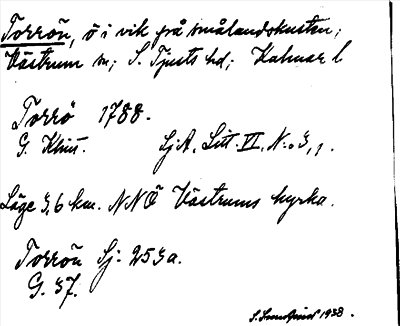 Torrön, ö i vik på smålandskusten;
Västrum sn; S. Tjusts hd; Kalmar l
Torrö 1788.
G. Klint. SjA, Litt. VI, N:o 3,1.
Läge 3,6 km. NNÖ Västrums kyrka.
Torrön Sj. 253a.
G. 37.
1938.